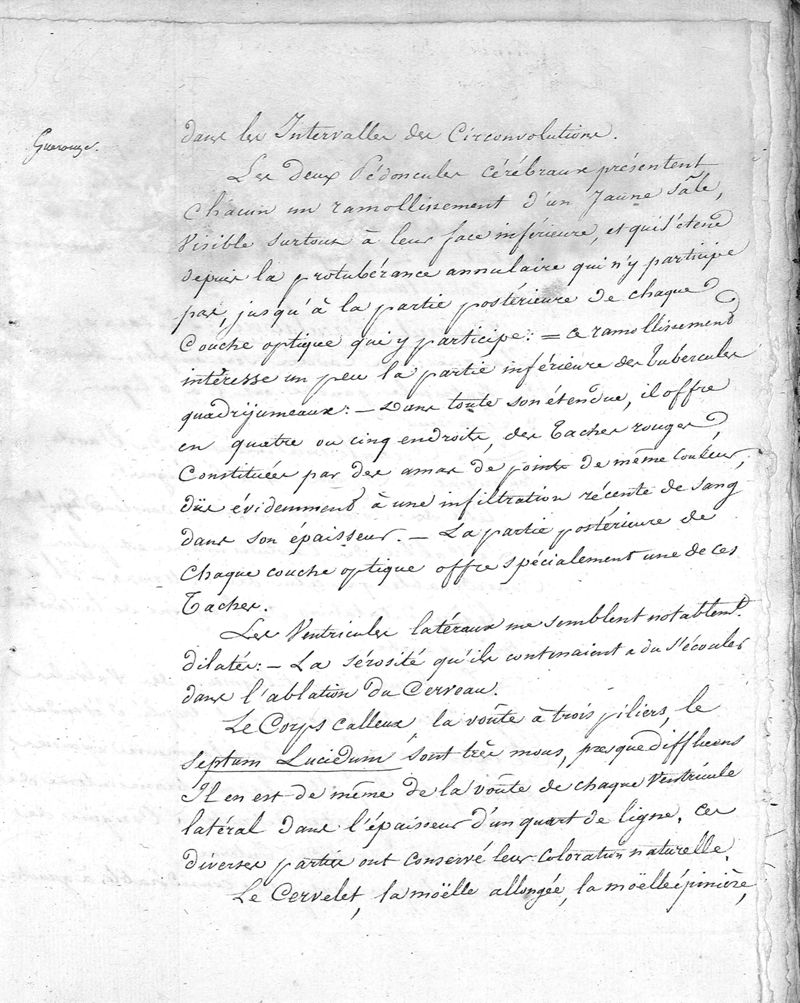 dans les Intervalles des Circonvolutions.
Les deux Pédoncules cérébraux présentent
Chacun un ramollissement d'un Jaune Sâle,
Visible surtout à leur face inférieure, et qui s'étend
depuis la protubérance annulaire qui n'y participe
pas, jusqu'à la partie postérieure de chaque
Couche optique qui y participe: = ce ramollissement
intéresse un peu la partie inférieure des Tubercules
quadrijumeaux: — Dans toute son étendue, il offre
en quatre ou cinq endroits, des Taches rouges,
Constituées par des amas de points de même couleur,
düs évidemment à une infiltration récente de sang
dans son épaisseur. — La partie postérieure de
Chaque couche optique offre spécialement une de ces
Taches.
Les Ventricules latéraux me semblent notablemt.
dilatés: — La sérosité qu'ils contenaient a du s'écouler
dans l'ablation du Cerveau.
Le Corps calleux, la voûte à trois piliers, le
septum Lucidum sont très mous, presque diffluens
Il en est de même de la voûte de chaque Ventricule
latéral dans l'épaisseur d'un quart de ligne. ces
diverses parties ont conservé leur coloration naturelle.
Le Cervelet, la moëlle allongée, la moëlle épinière,